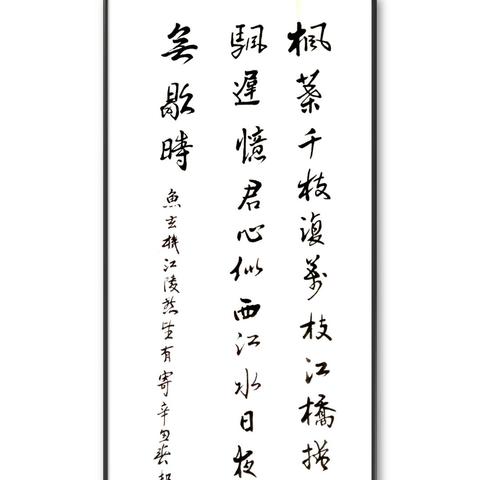 楓葉千枝復萬枝江橋掩
颿遲憶君心似西江水日夜
無歇時
魚玄機江陵愁望有寄辛